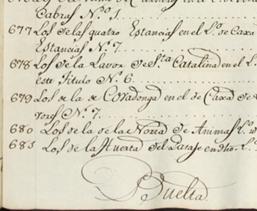 Cabras N.º 1.
677 Los de las quatro Estancias en el L.º de Caxa
Estancias N.º 7.
678 Los de la Lavor de S.ta Catalina en el L.
este Titulo N.º 6.
679 Los de la de Covadonga en el de Caxa de
N.º 7.
680 Los de la de la Noria de Animas L.º
681 Los de la Huerta del Paraje en dho. L.º
Vuelta